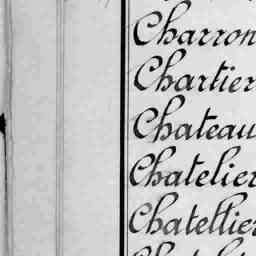 Charron
Chartier
Chateau
Chatelier
Chatellier